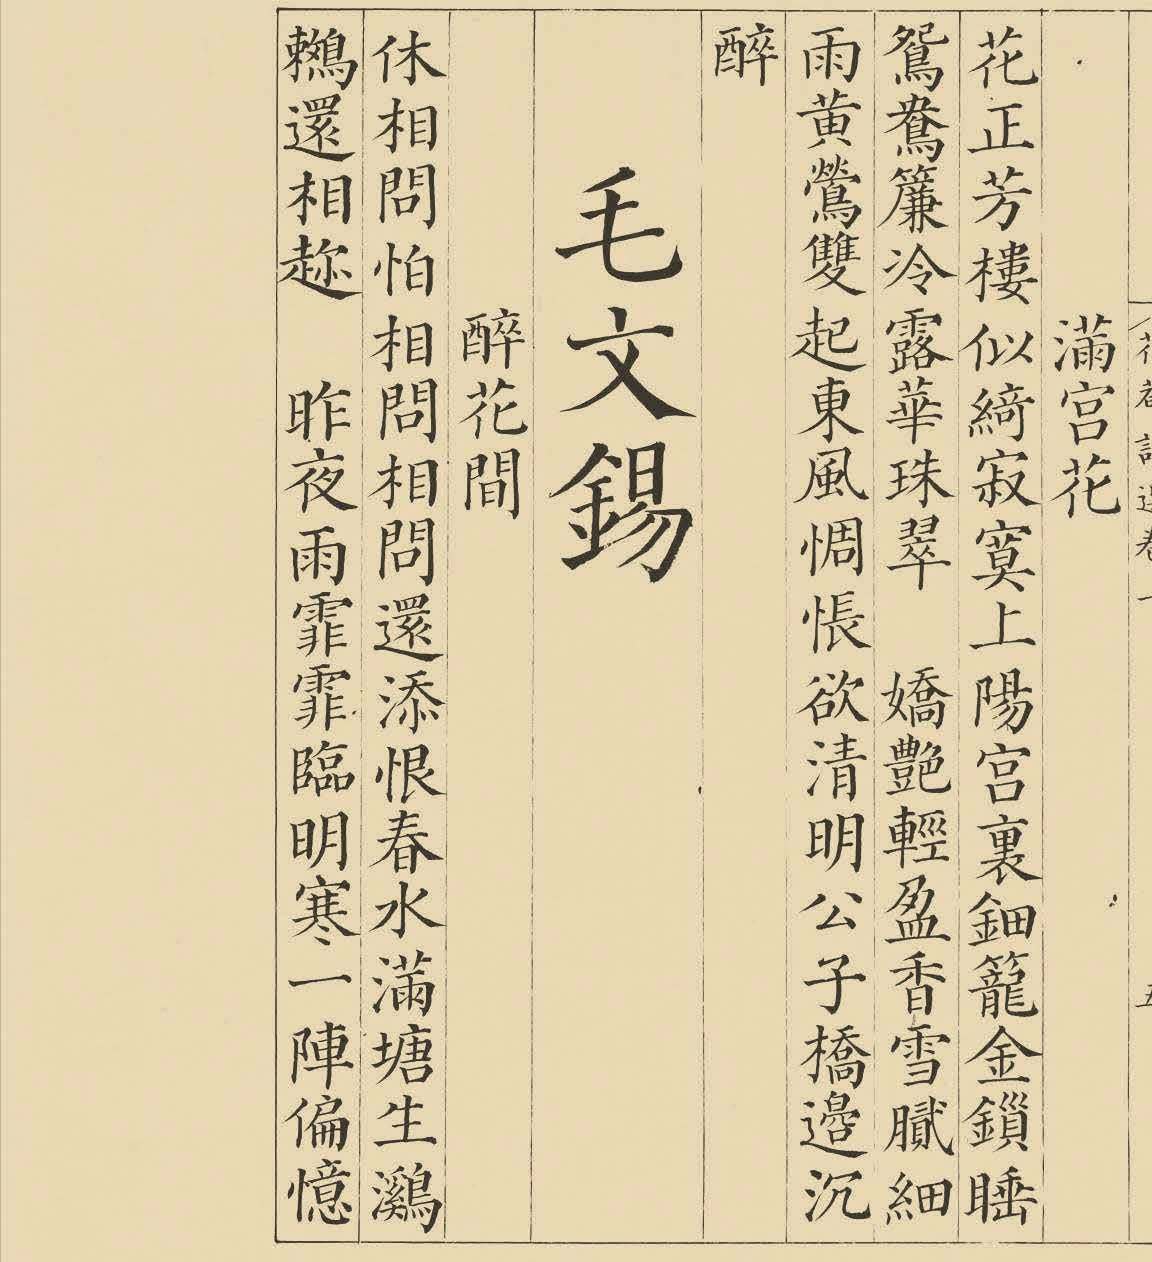 滿宮花
花正芳樓似綺寂寞上陽宮裏鈿籠金鎖睡
鴛鴦簾冷露華珠翠　嬌艷輕盈香雪膩細
雨黃鶯雙起東風惆悵欲清明公子橋邊沉
醉
毛文錫
醉花間
休相問怕相問相問還添恨春水滿塘生鸂
鶒還相趂　昨夜雨霏霏臨明寒一陣偏憶